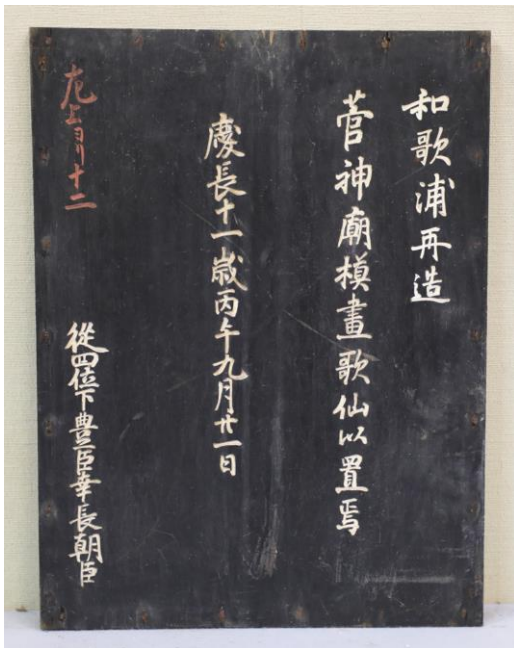 和歌浦再造
菅神廟模畫歌仙以置焉
慶長十一歳丙午九月廿一日
從四位下豊臣幸長朝臣
左上ヨリ十二